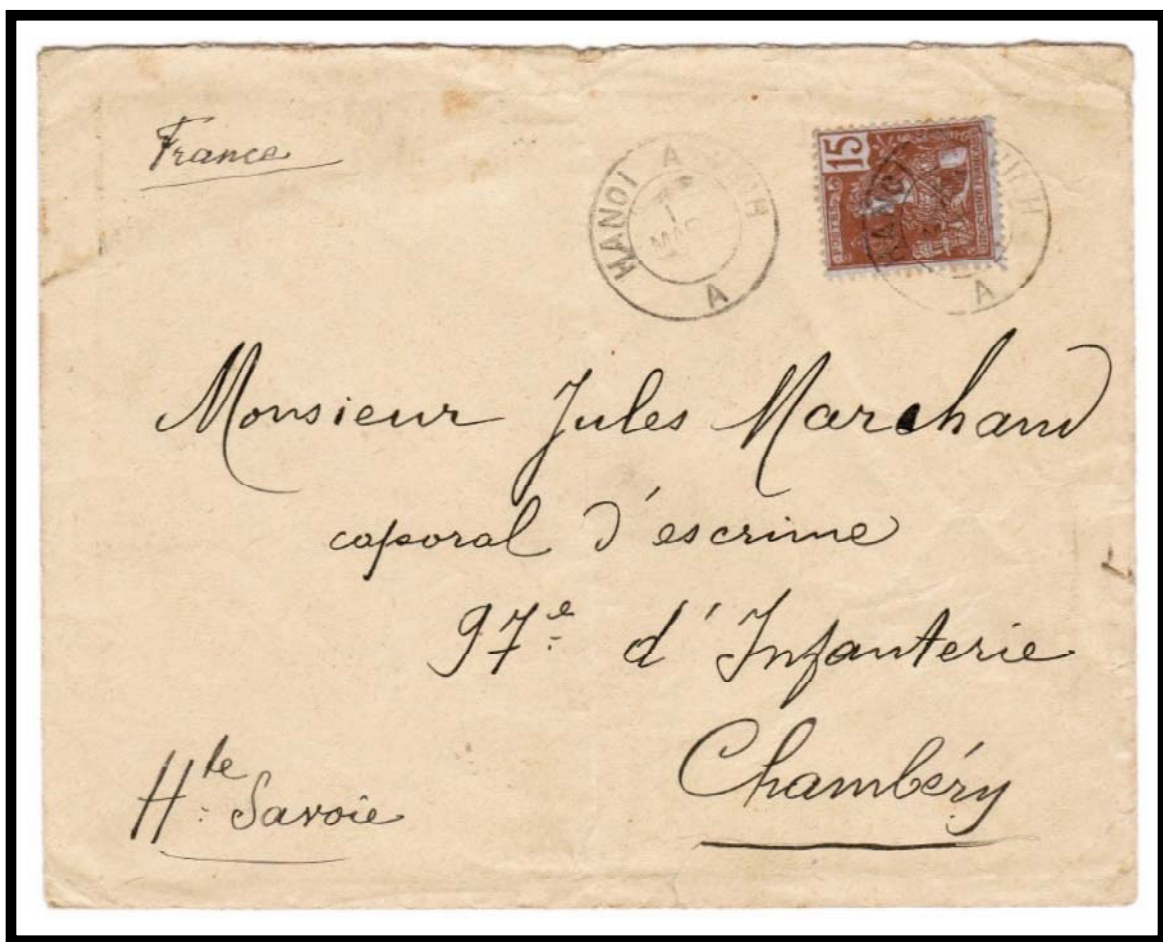 France
HANOI A
1
A
15
POSTES
INDO-CHINE FR
HANOI
A
Monsieur Jules Marchand
caporal d'escrime
97e d'Infanterie
Chambéry
Hte Savoie